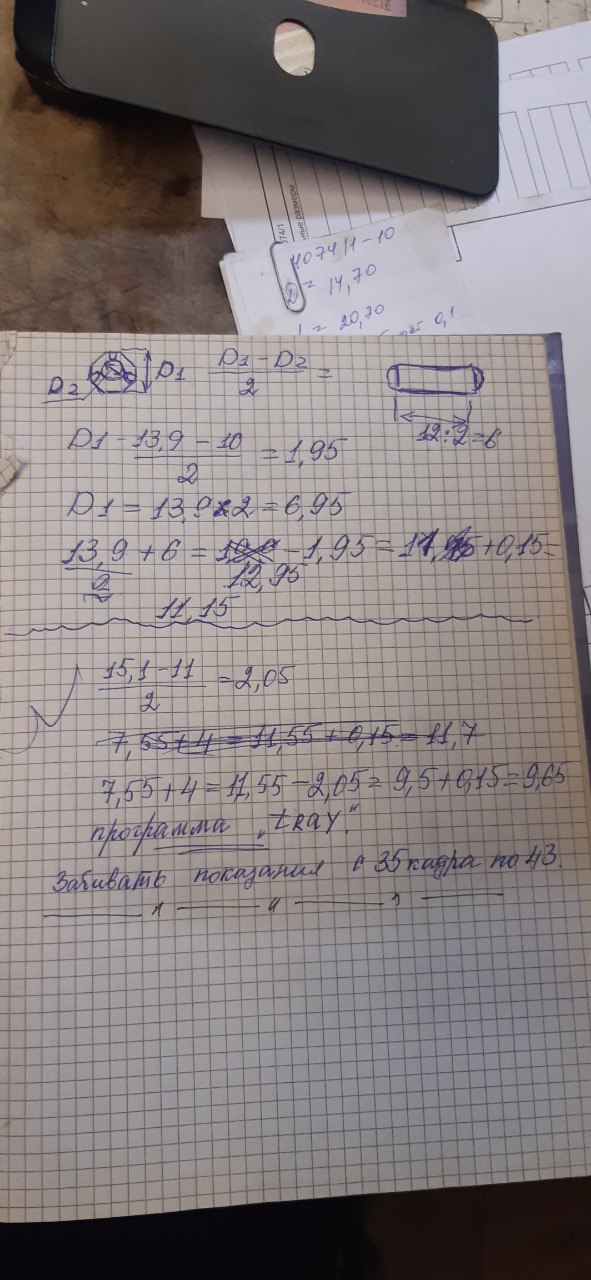 74/1
ные размеры
4074/1-10
D = 14,70
= 20,70
0,1
D2 D1 D1-D2/2 =
12:2=6
D1-13,9-10/2 = 1,95
D1 = 13,9:2 = 6,95
13,9/2 + 6 = 12,95 - 1,95 = 11 + 0,15 =
11,15
15,1-11/2 = 2,05
7,55+4 = 11,55 + 0,15 = 11,7
7,55+4 = 11,55 - 2,05 = 9,5 + 0,15 = 9,65
программа „tRAY."
Забивать показания с 35 кадра по 43.